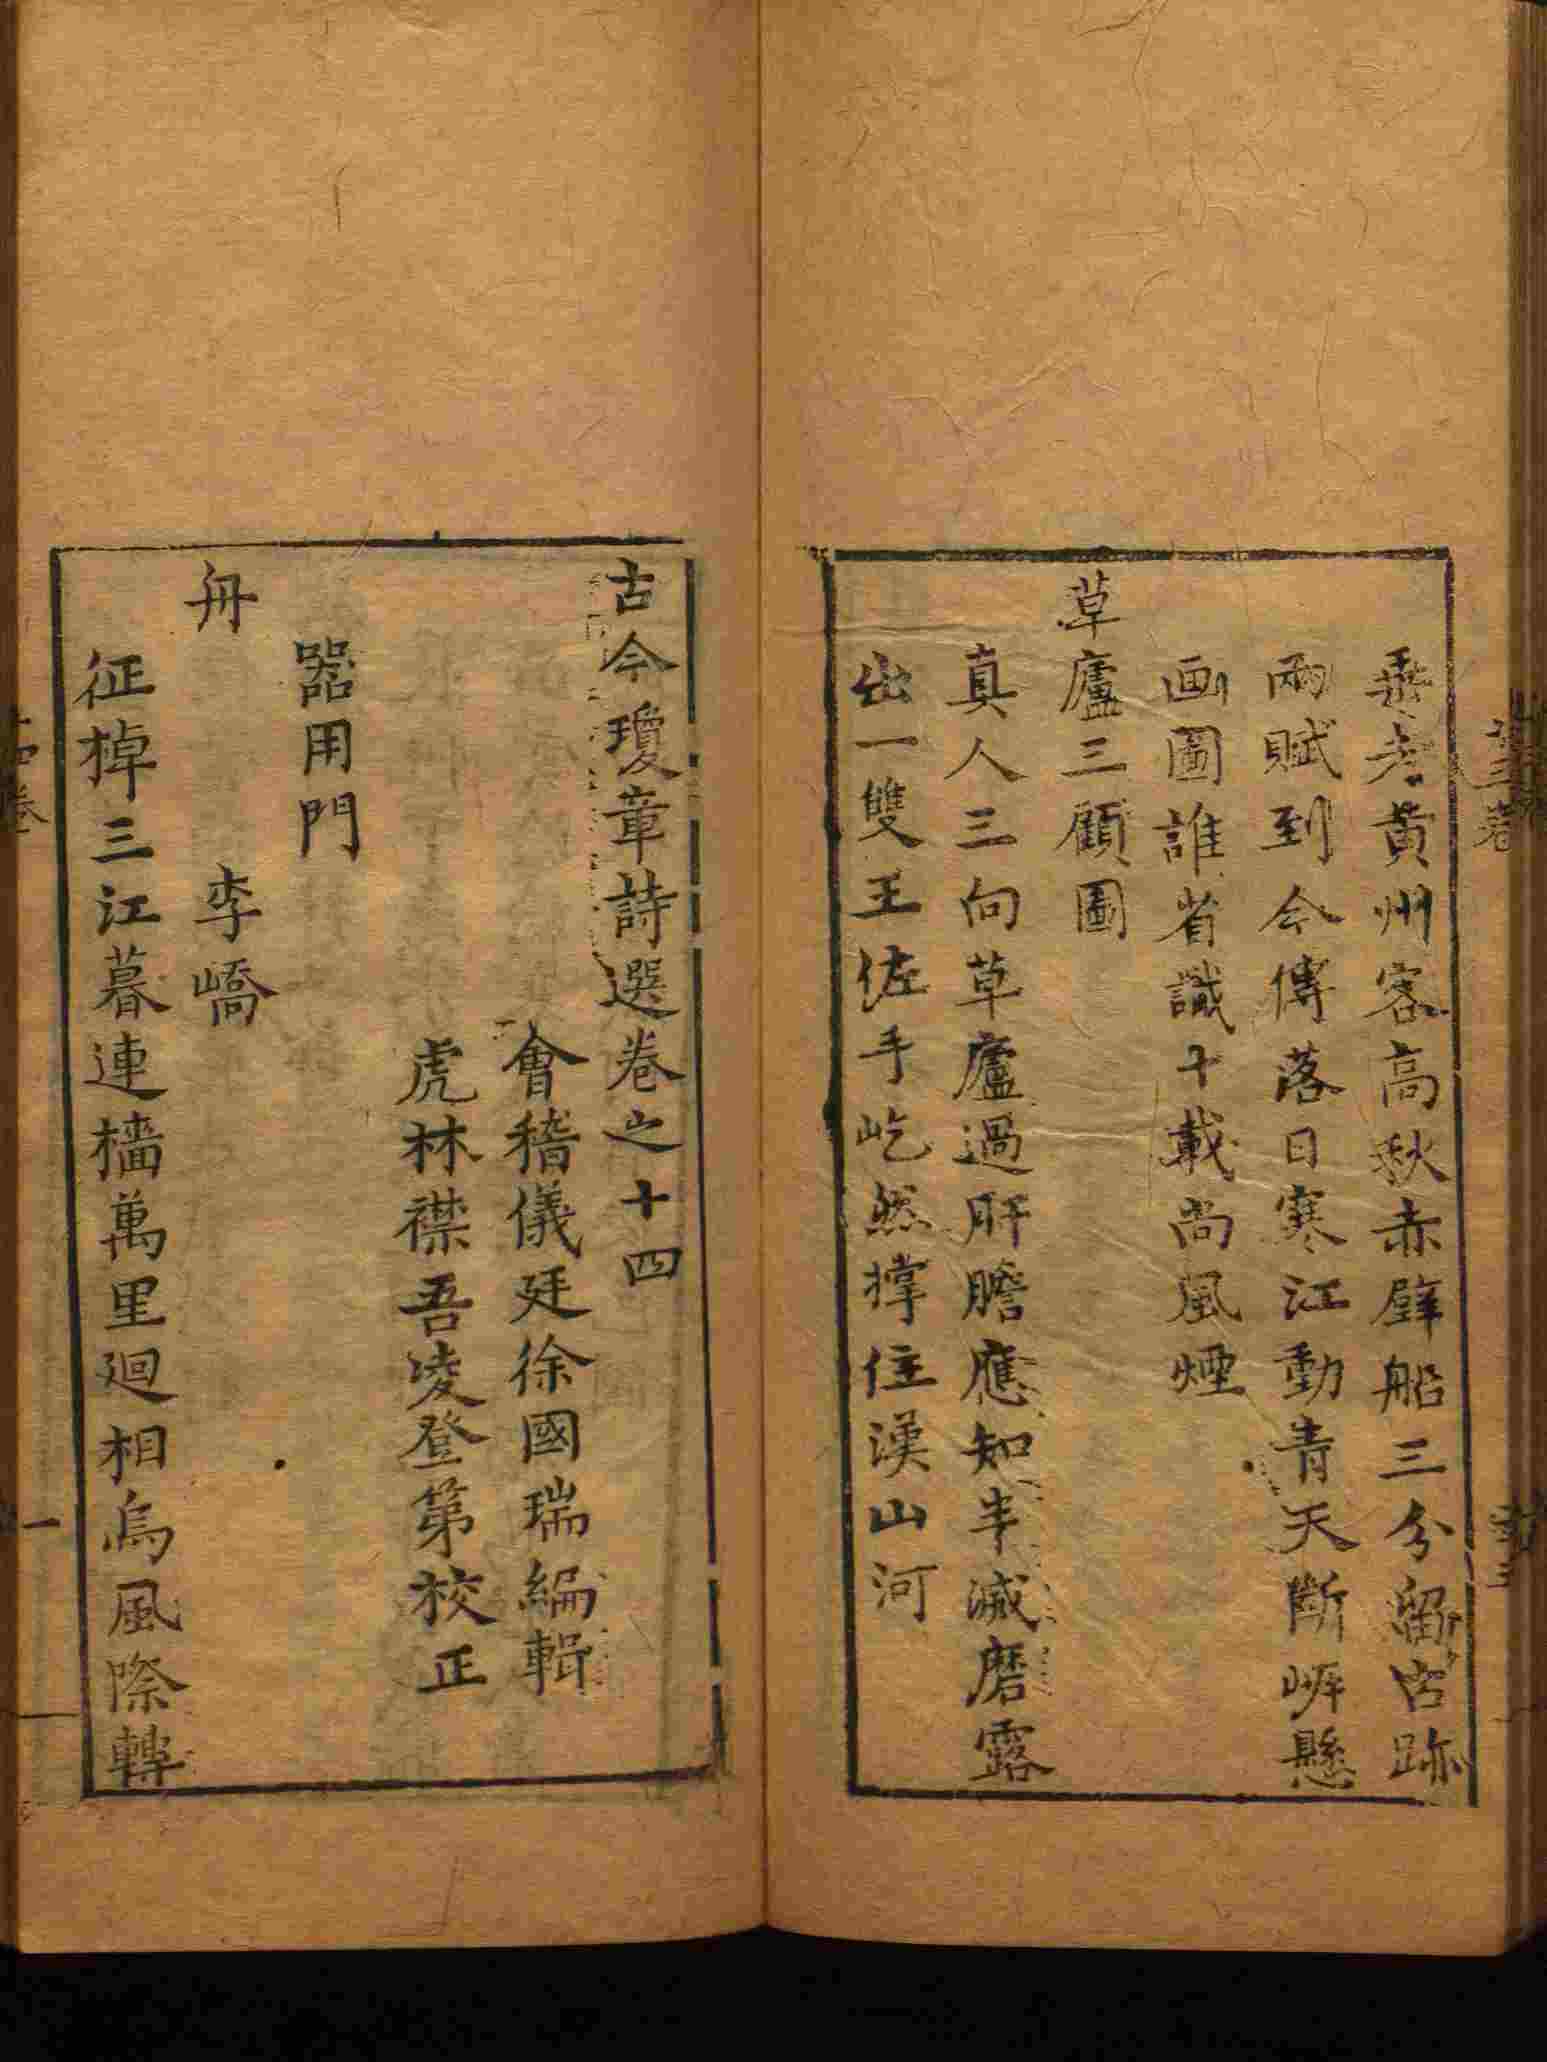 垂老黄州客高秋赤壁船三分留古跡
兩賦到今傳落日寒江動青天斷㟁懸
画圖誰省識十載尚風煙
草廬三顧圖
真人三向草廬過肝膽應知半滅磨露
出一雙王佐手屹然撑住漢山河
古今瓊章詩選卷之十四
會稽儀廷徐國瑞編輯
虎林襟吾凌登第校正
器用門
舟
李嶠
征棹三江暮連檣萬里廻相烏風際轉
一